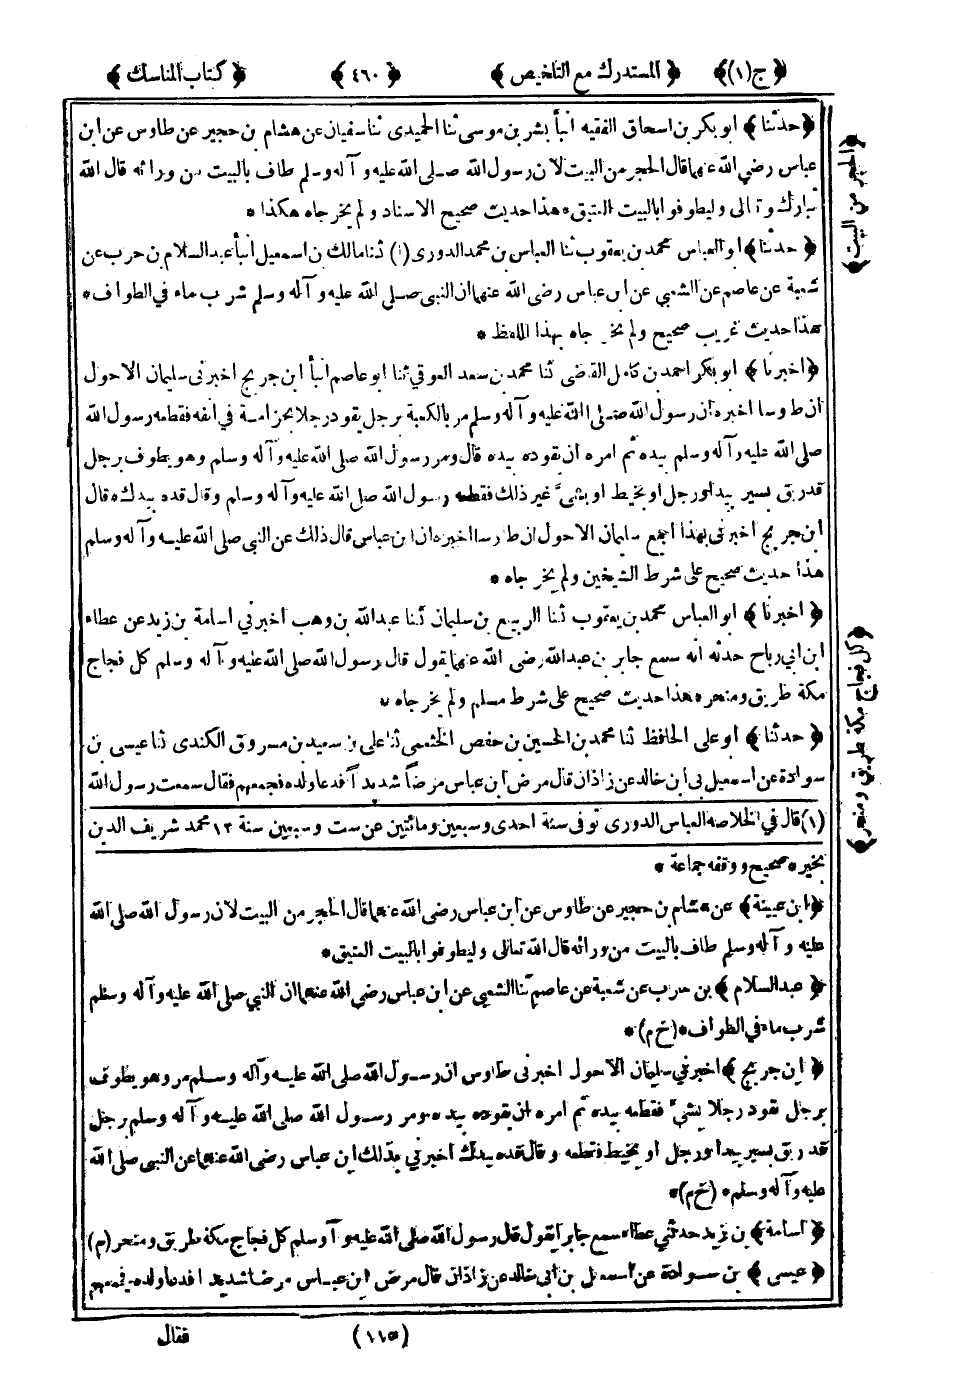 ﴿ ج(١) ﴾ ﴿ المستدرك مع التلخيص ﴾ ﴿ ٤٦٠ ﴾ ﴿ كتاب المناسك ﴾
﴿ حدثنا ﴾ ابو بكر بن اسحاق الفقيه انبأ بشر بن موسى ثنا الحميدى ثنا سفيان عن هشام بن حجير عن طاوس عن ابن
عباس رضي الله عنهما قال الحجر من البيت لان رسول الله صلى الله عليه وآله وسلم طاف بالبيت من ورائه قال الله
تبارك وتعالى وليطوفوا بالبيت العتيق * هذا حديث صحيح الاسناد ولم يخرجاه هكذا *
﴿ حدثنا ﴾ ابو العباس محمد بن يعقوب ثنا العباس بن محمد الدورى (١) ثنا مالك بن اسمعيل انبأ عبد السلام بن حرب عن
شعبة عن عاصم عن الشعبي عن ابن عباس رضى الله عنهما ان النبى صلى الله عليه وآله وسلم شرب ماء في الطواف *
هذا حديث غريب صحيح ولم يخرجاه بهذا اللفظ *
﴿ اخبرنا ﴾ ابو بكر احمد بن كامل القاضى ثنا محمد بن سعد العوفي ثنا ابو عاصم انبأ ابن جريج اخبرنى سليمان الاحول
ان طاوسا اخبره ان رسول الله صلى الله عليه وآله وسلم مر بالكعبة برجل يقود رجلا بخزامة في انفه فقطعه رسول الله
صلى الله عليه وآله وسلم بيده ثم امره ان يقوده بيده قال ومر رسول الله صلى الله عليه وآله وسلم وهو يطوف برجل
قد ربق بسير بيدا ورجل او بخيط او بشىء غير ذلك فقطعه رسول الله صلى الله عليه وآله وسلم وقال قده بيدك * قال
ابن جريج اخبرنى بهذا اجمع سليمان الاحول ان طاوسا اخبره ان ابن عباس قال ذلك عن النبى صلى الله عليه وآله وسلم
هذا حديث صحيح على شرط الشيخين ولم يخرجاه *
﴿ اخبرنا ﴾ ابو العباس محمد بن يعقوب ثنا الربيع بن سليمان ثنا عبد الله بن وهب اخبرنى اسامة بن زيد عن عطاء
ابن ابي رباح حدثه انه سمع جابر بن عبد الله رضى الله عنهما يقول قال رسول الله صلى الله عليه وآله وسلم كل فجاج
مكة طريق ومنحر * هذا حديث صحيح على شرط مسلم ولم يخرجاه *
﴿ حدثنا ﴾ ابو على الحافظ ثنا محمد بن الحسين بن حفص الخثعمى ثنا على بن سعيد بن مسروق الكندى ثنا عيسى بن
سوادة عن اسمعيل بن ابى خالد عن زاذان قال مرض ابن عباس مرضاً شديداً فدعا ولده فجمعهم فقال سمعت رسول الله
(١) قال في الخلاصه العباس الدورى توفى سنة احدى وسبعين ومائتين عن ست وسبعين سنة ١٢ محمد شريف الدين
بخير * صحيح ووقفه جماعة *
﴿ ابن عيينة ﴾ عن هشام بن حجير عن طاوس عن ابن عباس رضى الله عنهما قال الحجر من البيت لان رسول الله صلى الله
عليه وآله وسلم طاف بالبيت من ورائه قال الله تعالى وليطوفوا بالبيت العتيق *
﴿ عبد السلام ﴾ بن حرب عن شعبة عن عاصم ثنا الشعبى عن ابن عباس رضى الله عنهما ان النبي صلى الله عليه وآله وسلم
شرب ماء في الطواف * (خ م) *
﴿ ابن جريج ﴾ اخبرني سليمان الاحول اخبرنى طاوس ان رسول الله صلى الله عليه وآله وسلم مر وهو يطوف
برجل يقود رجلا بشىء فقطعه بيده ثم امره ان يقوده بيده ومر رسول الله صلى الله عليه وآله وسلم برجل
قد ربق بسير بيدا ورجل او بخيط فقطعه وقال قده بيدك اخبرني بذلك ابن عباس رضى الله عنهما عن النبى صلى الله
عليه وآله وسلم * (خ م) *
﴿ اسامة ﴾ بن زيد حدثني عطاء سمع جابرا يقول قال رسول الله صلى الله عليه وآله وسلم كل فجاج مكة طريق ومنحر (م)
﴿ عيسى ﴾ بن سوادة عن اسمعيل بن ابى خالد عن زاذان قال مرض ابن عباس مرضا شديدا فدعا ولده فجمعهم
﴿ الحجر من البيت ﴾
﴿ كل فجاج مكة طريق ومنحر ﴾
(١١٥) فقال